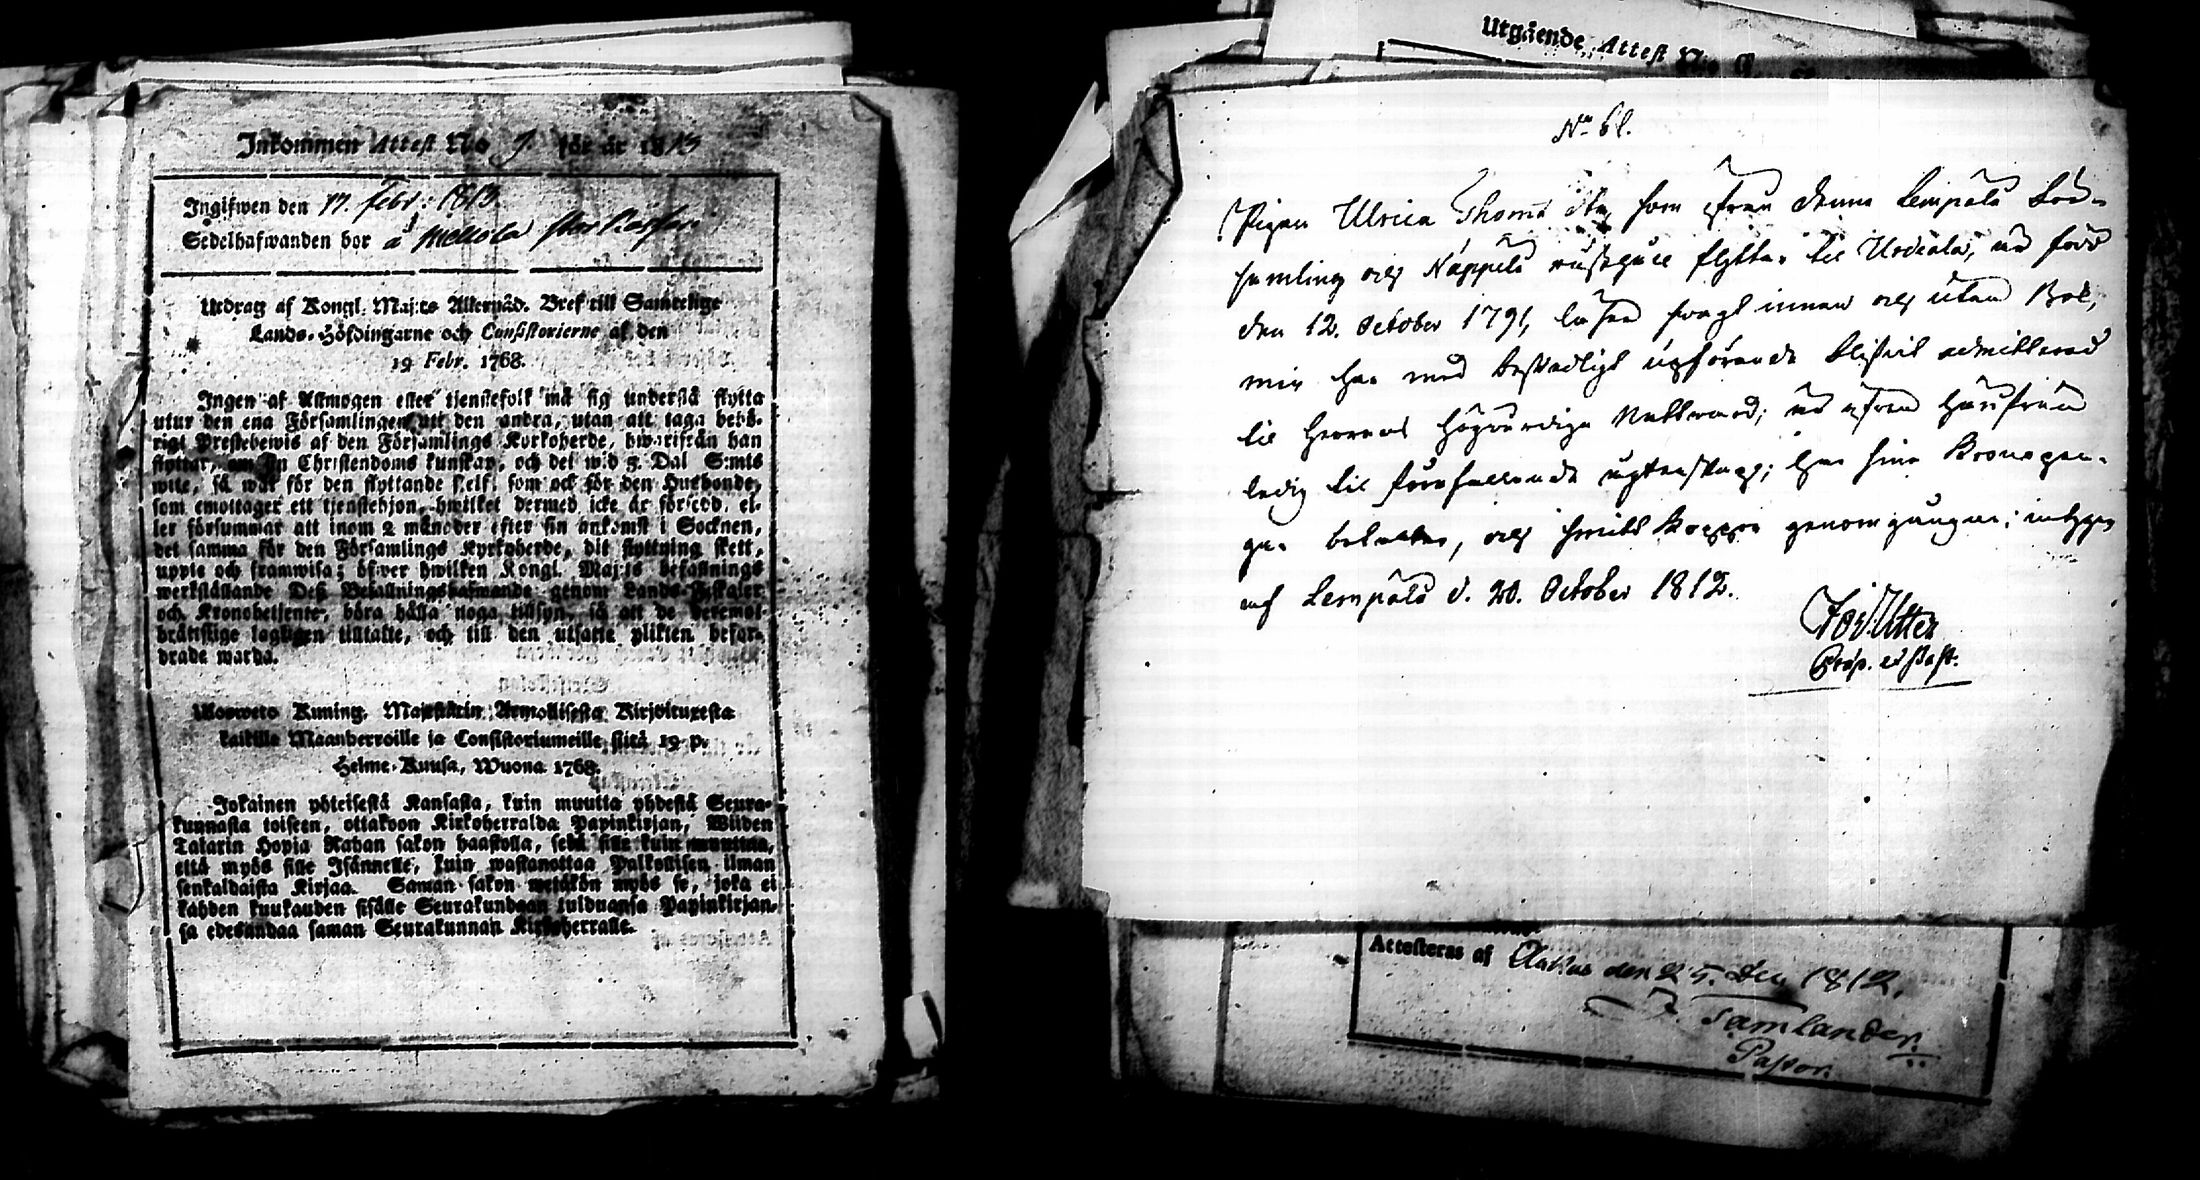 Inkommen Attest No 9. för år 1813
Ingifwen den 17. Febr: 1813.
Sedelhafwanden bor å Mellola
Utdrag af Kongl. Maj:ts Allernåd. Bref till Samtelige
Lands-Höfdingarne och Consistorierne af den
19 Febr. 1768.
Ingen af Allmogen eller tjenstefolk må sig understå flytta
utur den ena Församlingen uti den andra, utan att taga behö-
rigt Prestebewis af den Församlings Kyrkoherde, hwarifrån han
flyttar, om sin Christendoms kunskap, och det wid 5. Dal. S:mts
wite, så wäl för den flyttande self, som ock för den Husbonde,
som emottager ett tjenstehjon, hwilket dermed icke är försedd, el-
ler försummar att inom 2 månader efter sin ankomst i Socknen,
det samma för den Församlings Kyrkoherde, dit flyttning skett,
uppte och framwisa; öfwer hwilken Kongl. Maj:ts befallnings
werkställande Deß Befallningshafwande genom Lands-Fiskaler
och Kronobetjente, böra hålla noga tillsyn, så att de deremot
brättslige lagligen tilltalte, och till den utsatte plikten befor-
drade warda.
Ulosweto Kuning. Majestätin Armollisesta Kirjoituxesta
kaikille Maanherroille ja Consistoriumeille siitä 19 p.
Helme-Kuusa, Wuona 1768.
Jokainen yhteisestä Kansasta, kuin muutta yhdestä Seura-
kunnasta toiseen, ottakoon Kirkoherralda Papinkirjan, Wiiden
Talarin Hopia Rahan sakon haastolla, sekä sille kuin muuttaa,
että myös sille Isännelle, kuin wastanottaa Palkollisen ilman
senkaldaista Kirjaa. Saman sakon wetäkön myös se, joka ei
kahden kuukauden sisälle Seurakundaan tulduansa Papinkirjan-
sa edesandaa saman Seurakunnan Kirkoherralle.
Utgående Attest No
No 61.
Pigan Ulrica Thomæ dtr, som ifrån denna Lempälä för-
samling och Näppilä rusthåll flyttar til Urdiala, är född
den 12. October 1791, läser svagt innan och utan Bok,
men har med beskedligt upförande blifvit admitterad
til Herrans Högvärdiga Nattvard; är ifrån Hånfrån
ledig til förefallande ägtenskap; har sina Kronopen-
gar betalte, och haft Koppor genomgångne; intygar
af Lempälä d. 20. October 1812.
Utter
Præp. et Past.
Attesteras af Ackas den 25. Dec. 1812.
Tamlander
Pastor.